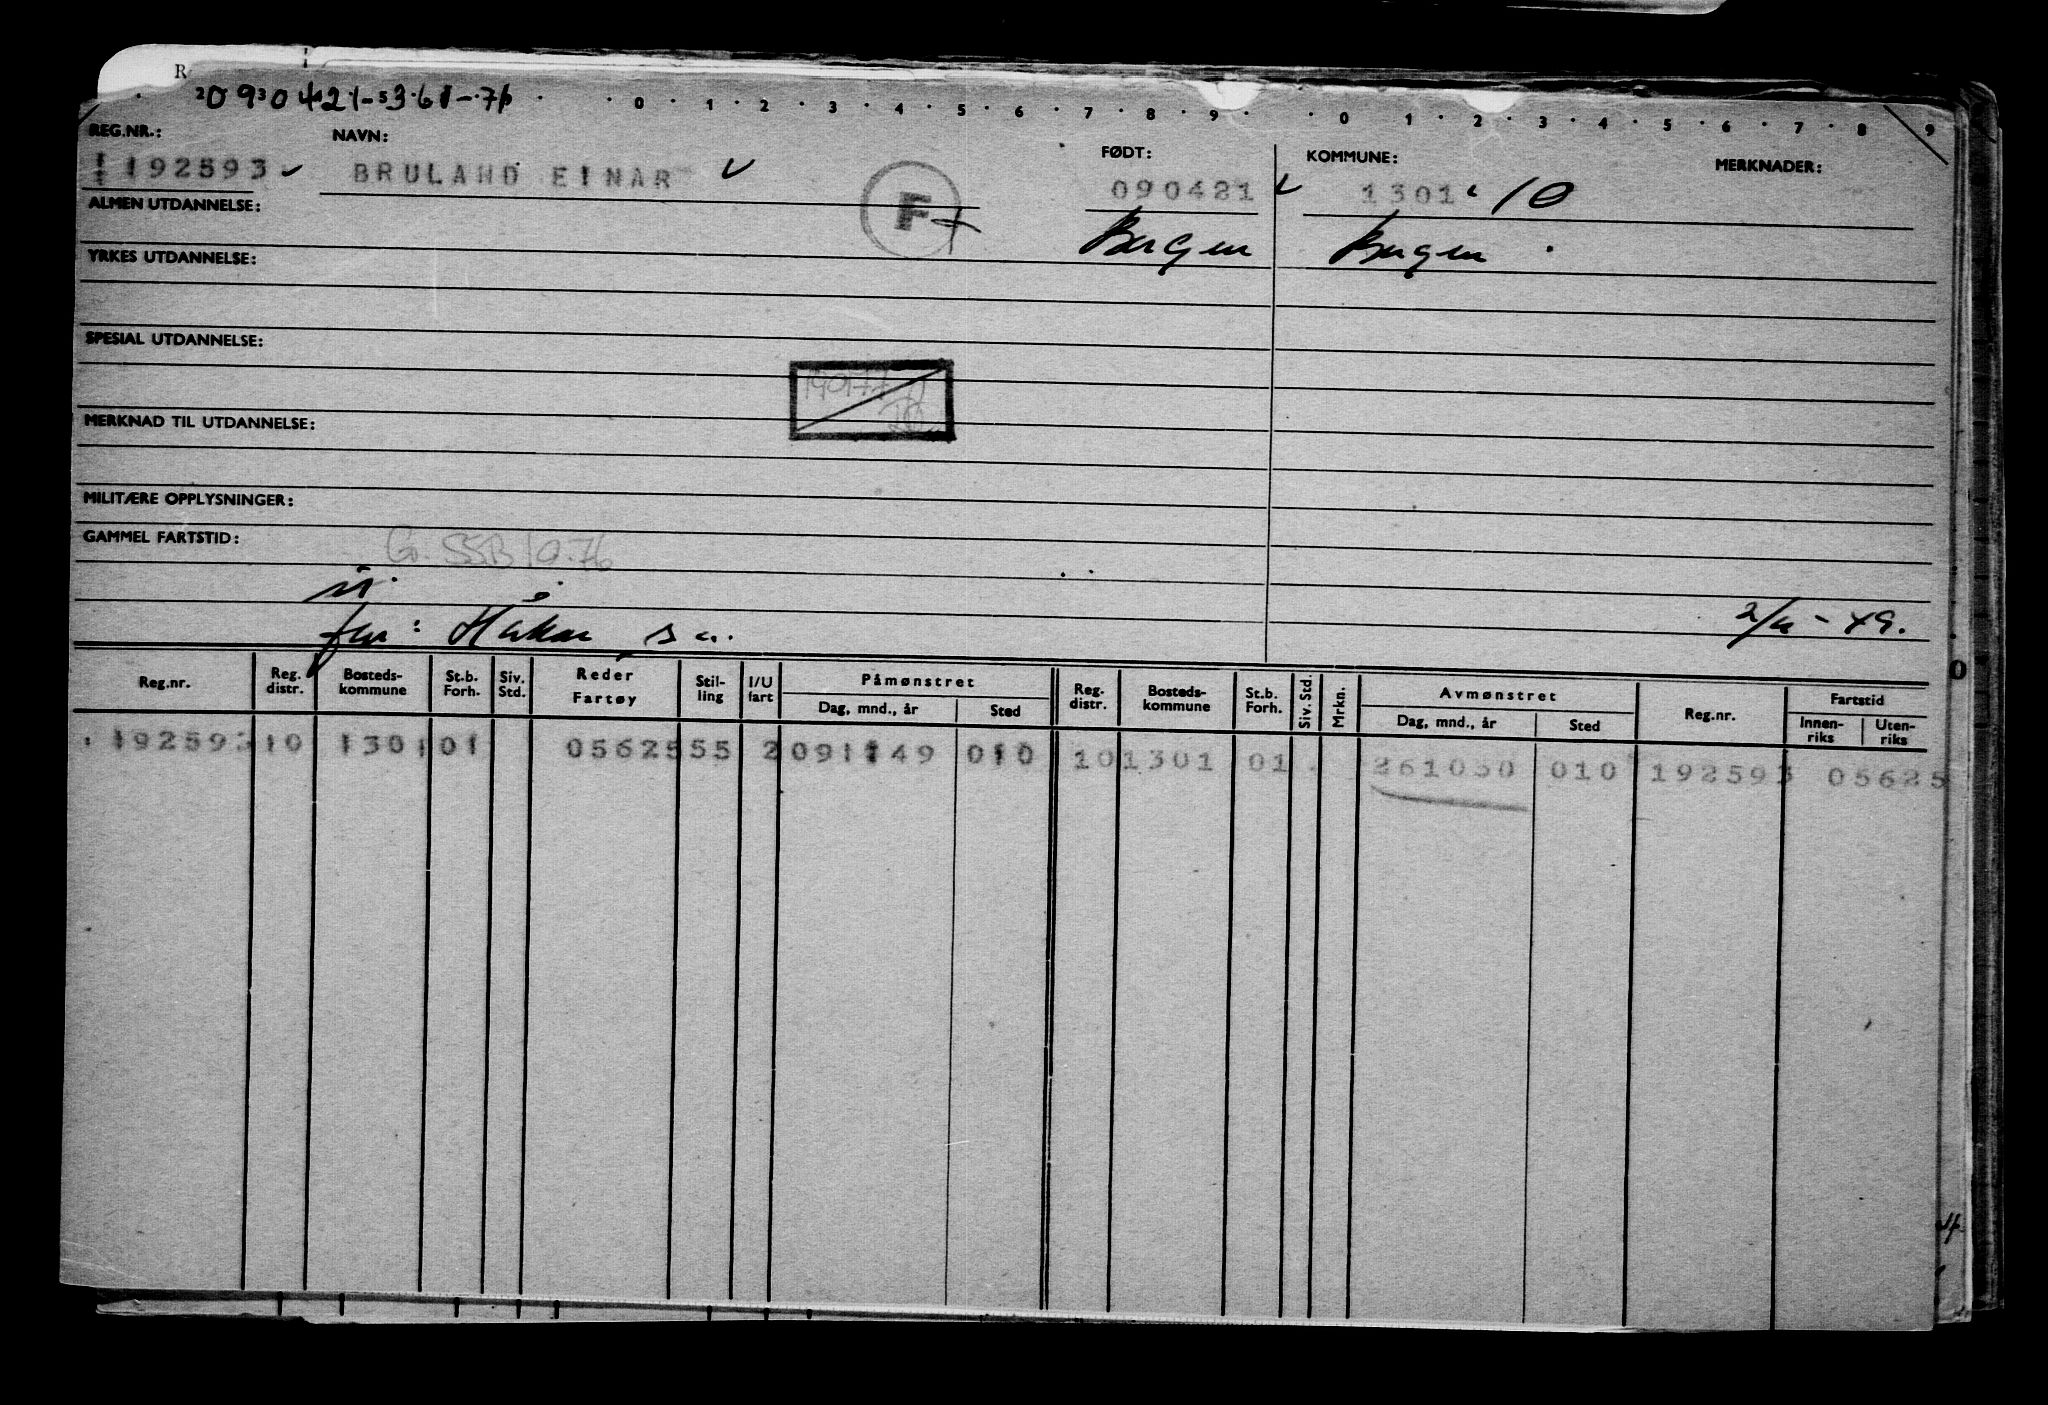 R
090421-361-71
0 1 2 3 4 5 6 7 8 9 0 1 2 3 4 5 6 7 8 9
REG.NR.: NAVN: FØDT: KOMMUNE: MERKNADER:
192593 BRULAND EINAR 090421 1301 10
F
ALMEN UTDANNELSE: Bergen Bergen
YRKES UTDANNELSE:
SPESIAL UTDANNELSE:
MERKNAD TIL UTDANNELSE:
MILITÆRE OPPLYSNINGER:
GAMMEL FARTSTID:
G. SSB 10.76
far: Håkon s.st.
Reg.nr. Reg. distr. Bosteds-kommune St.b. Forh. Siv. Std. Reder Fartøy Stil-ling I/U fart Påmønstret Dag, mnd., år Sted Reg. distr. Bosteds-kommune St.b. Forh. Siv. Std. Mrkn. Avmønstret Dag, mnd., år Sted Reg.nr. Fartstid Innen-riks Uten-riks
192593 10 1301 01 05625 55 2 091149 010 10 1301 01 261050 010 192593 05625